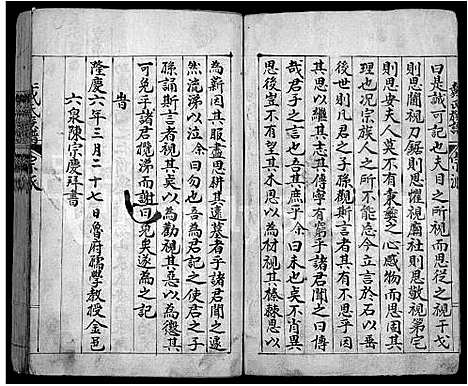 曰是誠可記也夫目之所視而思從之視干戈
則思鬭視刀鋸則思懼視廟社則思敬視第宅
則思安夫人莫不有秉彝之心感物而思固其
理也况宗族人之所能思念今立言于石以垂
後世則凡君之子孫觀斯言者其有不思乎因
其思以傳思其傳寧有窮乎諸君聞之曰博
哉君子之言也其傳乎余曰未也矣不肖異
思後豈不有以思乎其木思以為材視其榛棘思以
為薪因其服盡思耕其遠墓者乎諸君聞之遂
然流涕以泣余曰勿也吾為君記之使君之子
孫誦斯言者視其矣以為勸視其惡以為懲其
可免乎諸君攬涕而謝曰免矣遂為之記
旹
隆慶六年三月二十七日魯府儒學教授金邑
六泉陳宗慶拜書